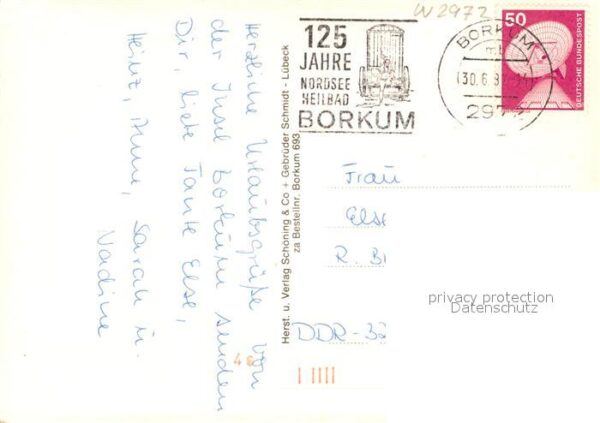 Herzliche Urlaubsgrüße von
der Insel Borkum senden
Dir, liebe Tante Else,
Heinz, Anne, Sarah u.
Nadine
Herst. u. Verlag Schöning & Co + Gebrüder Schmidt - Lübeck
za Bestellnr. Borkum 693
W 2972
125
JAHRE
NORDSEE
HEILBAD
BORKUM
BORKUM
30.6.8
297
50
DEUTSCHE BUNDESPOST
Frau
Else
R. B
DDR-3
privacy protection
Datenschutz
4